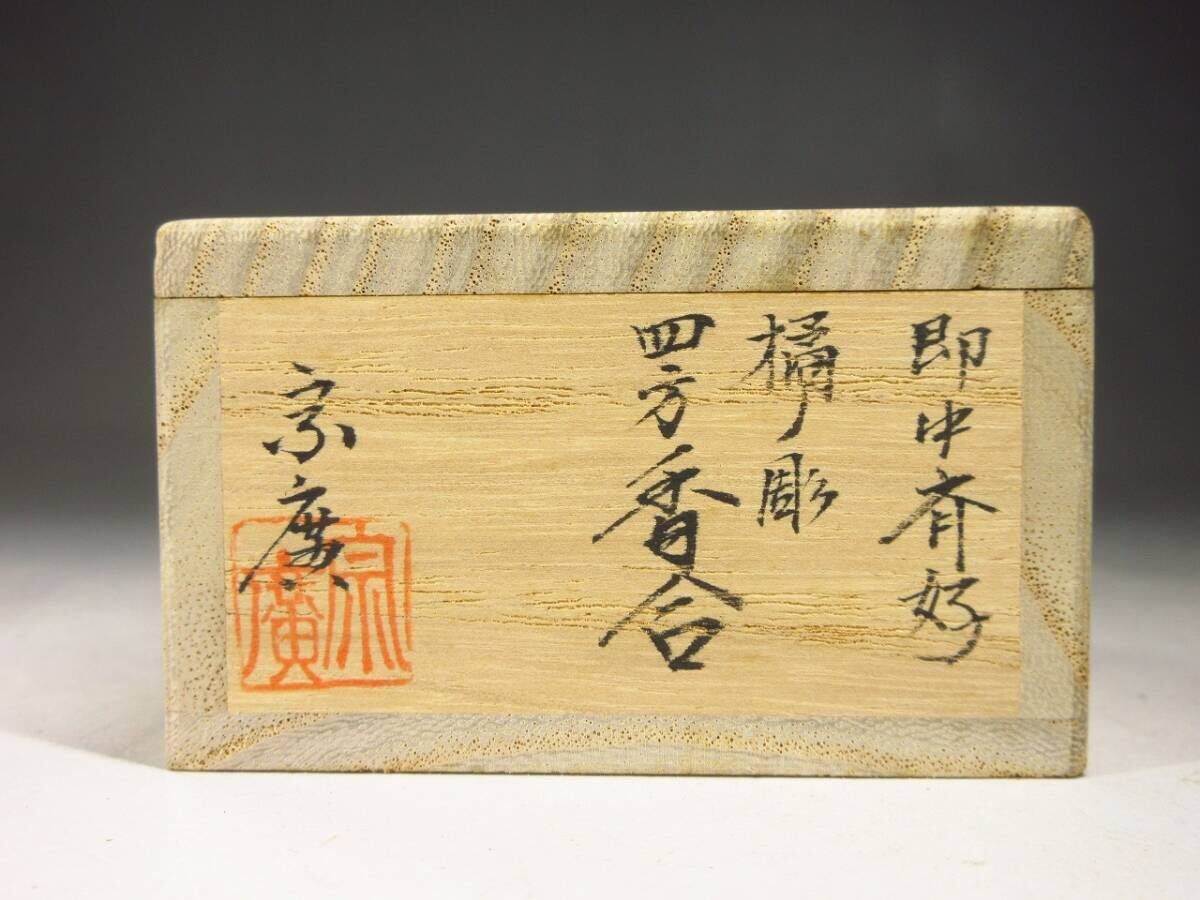 即中斉好
橘ノ彫
四方香合
宗廣
宗廣